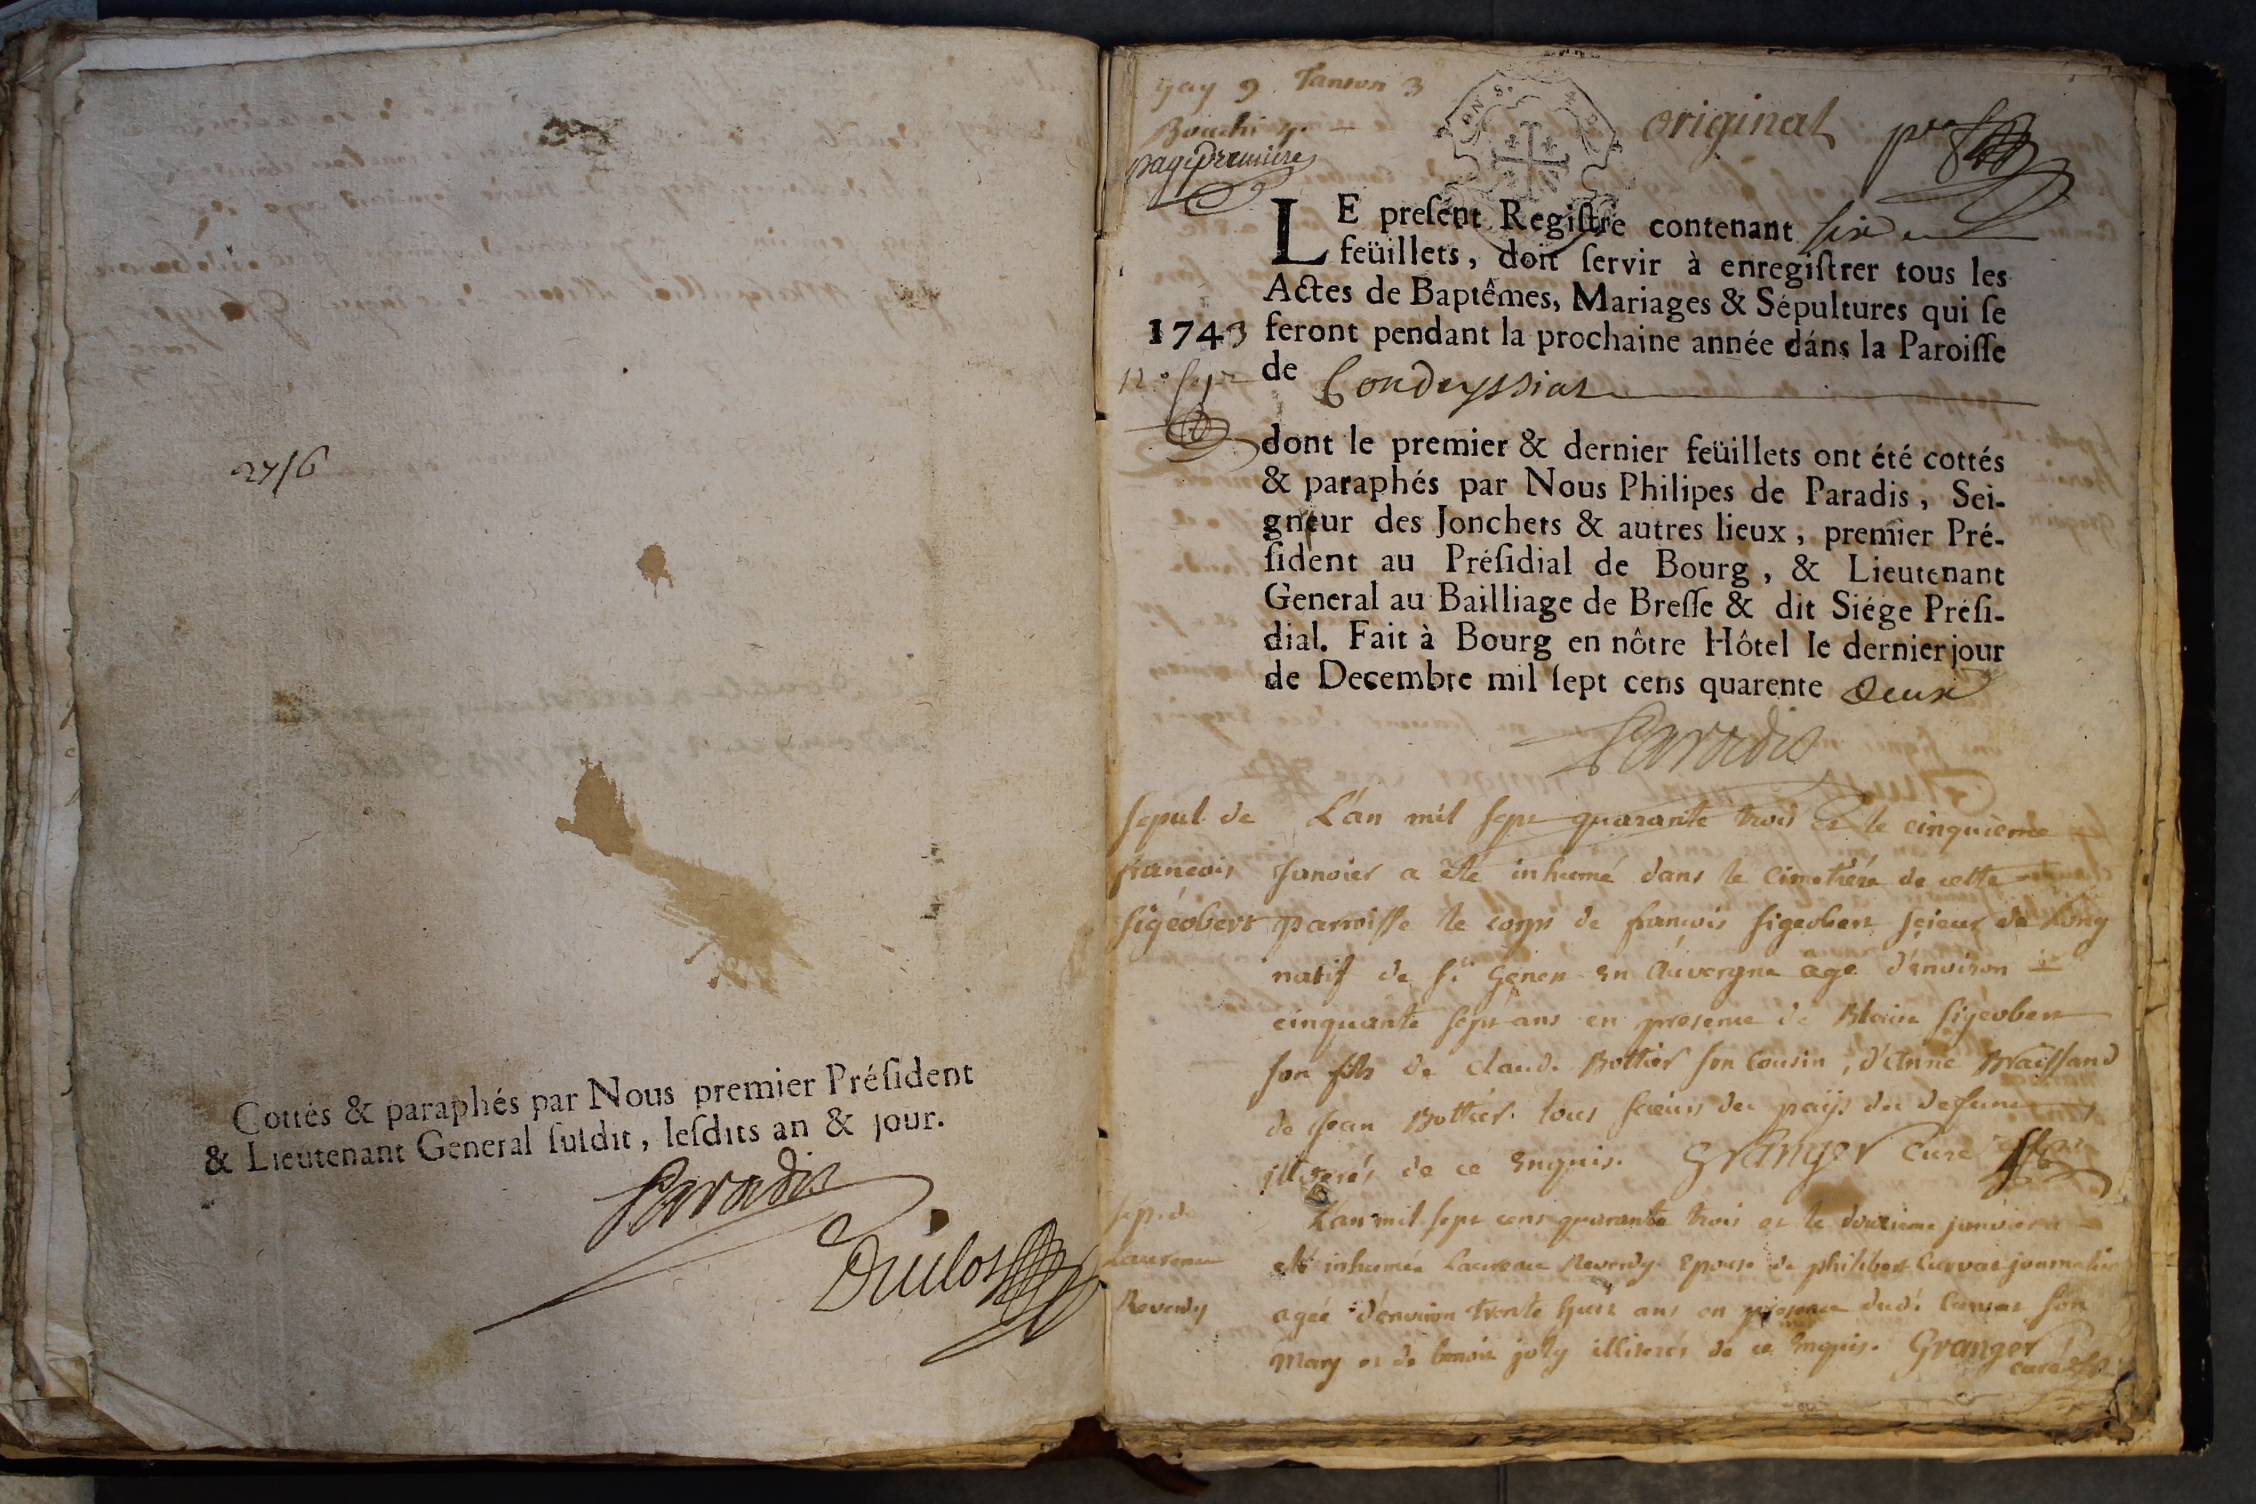 2756
Cottés & paraphés par Nous premier Préſident
& Lieutenant General ſuſdit, leſdits an & jour.
Paradis
Duclos
gay 9 Tanton 3
page premiere
original
LE preſent Regiſtre contenant six
feüillets, doit ſervir à enregiſtrer tous les
Actes de Baptêmes, Mariages & Sépultures qui ſe
1743 feront pendant la prochaine année dáns la Paroiſſe
de Condeyssiat
dont le premier & dernier feüillets ont été cottés
& paraphés par Nous Philipes de Paradis, Sei-
gneur des Jonchets & autres lieux, premier Pré-
ſident au Préſidial de Bourg, & Lieutenant
General au Bailliage de Breſſe & dit Siége Préſi-
dial. Fait à Bourg en nôtre Hôtel le dernier jour
de Decembre mil ſept cens quarente deux
Paradis
sepul. de L'an mil sept quarante trois et le cinquieme
francois Janvier a eté inhumé dans le cimetiére de cette
sigéobert parroisse le corps de francois sigeobert scieur de long
natif de st Genen en Auvergne agé d'environ
cinquante sept ans en presence de Blaise sigeobert
son fils de Claude Bottier son Cousin, d'Anne Braissand
de jean Bottier tous scieurs du païs du defunt
illiterés de ce enquis. Granger Curé
sep. de L'an mil sept cens quarante trois et le douzieme janvier a
Laurence eté inhumée Laurence Reverdy Epouse de philibert Curvat journalier
Reverdy ageé d'environ trente huit ans en presence dudi Curvat son
mary et de benoit joly illiterés de ce enquis. Granger
curé